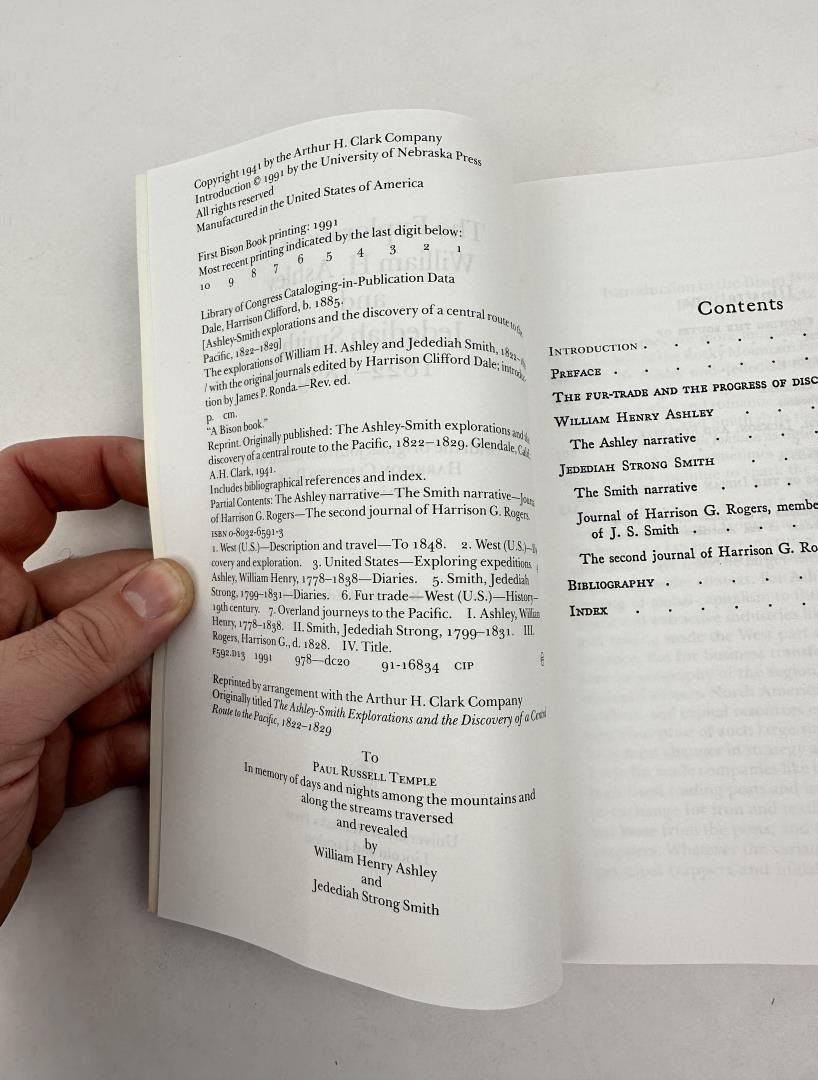 Copyright 1941 by the Arthur H. Clark Company
Introduction © 1991 by the University of Nebraska Press
All rights reserved
Manufactured in the United States of America
First Bison Book printing: 1991
Most recent printing indicated by the last digit below:
10 9 8 7 6 5 4 3 2 1
Library of Congress Cataloging-in-Publication Data
Dale, Harrison Clifford, b. 1885.
[Ashley-Smith explorations and the discovery of a central route to the
Pacific, 1822–1829]
The explorations of William H. Ashley and Jedediah Smith, 1822–
/ with the original journals edited by Harrison Clifford Dale; introduc-
tion by James P. Ronda.—Rev. ed.
p. cm.
"A Bison book."
Reprint. Originally published: The Ashley-Smith explorations and the
discovery of a central route to the Pacific, 1822–1829. Glendale, Calif.
A.H. Clark, 1941.
Includes bibliographical references and index.
Partial Contents: The Ashley narrative—The Smith narrative—Journal
of Harrison G. Rogers—The second journal of Harrison G. Rogers.
ISBN 0-8032-6591-3
1. West (U.S.)—Description and travel—To 1848. 2. West (U.S.)—
covery and exploration. 3. United States—Exploring expeditions.
Ashley, William Henry, 1778–1838—Diaries. 5. Smith, Jedediah
Strong, 1799–1831—Diaries. 6. Fur trade—West (U.S.)—History—
19th century. 7. Overland journeys to the Pacific. I. Ashley, William
Henry, 1778–1838. II. Smith, Jedediah Strong, 1799–1831. III.
Rogers, Harrison G., d. 1828. IV. Title.
F592.D13 1991 978—dc20 91-16834 CIP
Reprinted by arrangement with the Arthur H. Clark Company
Originally titled The Ashley-Smith Explorations and the Discovery of a Central
Route to the Pacific, 1822–1829
To
Paul Russell Temple
In memory of days and nights among the mountains and
along the streams traversed
and revealed
by
William Henry Ashley
and
Jedediah Strong Smith
Contents
Introduction . . . . . .
Preface . . . . . . .
The fur-trade and the progress of disc
William Henry Ashley . . .
The Ashley narrative . . . .
Jedediah Strong Smith . . .
The Smith narrative . . . .
Journal of Harrison G. Rogers, membe
of J. S. Smith . . . . .
The second journal of Harrison G. Ro
Bibliography . . . . .
Index . . . . . .